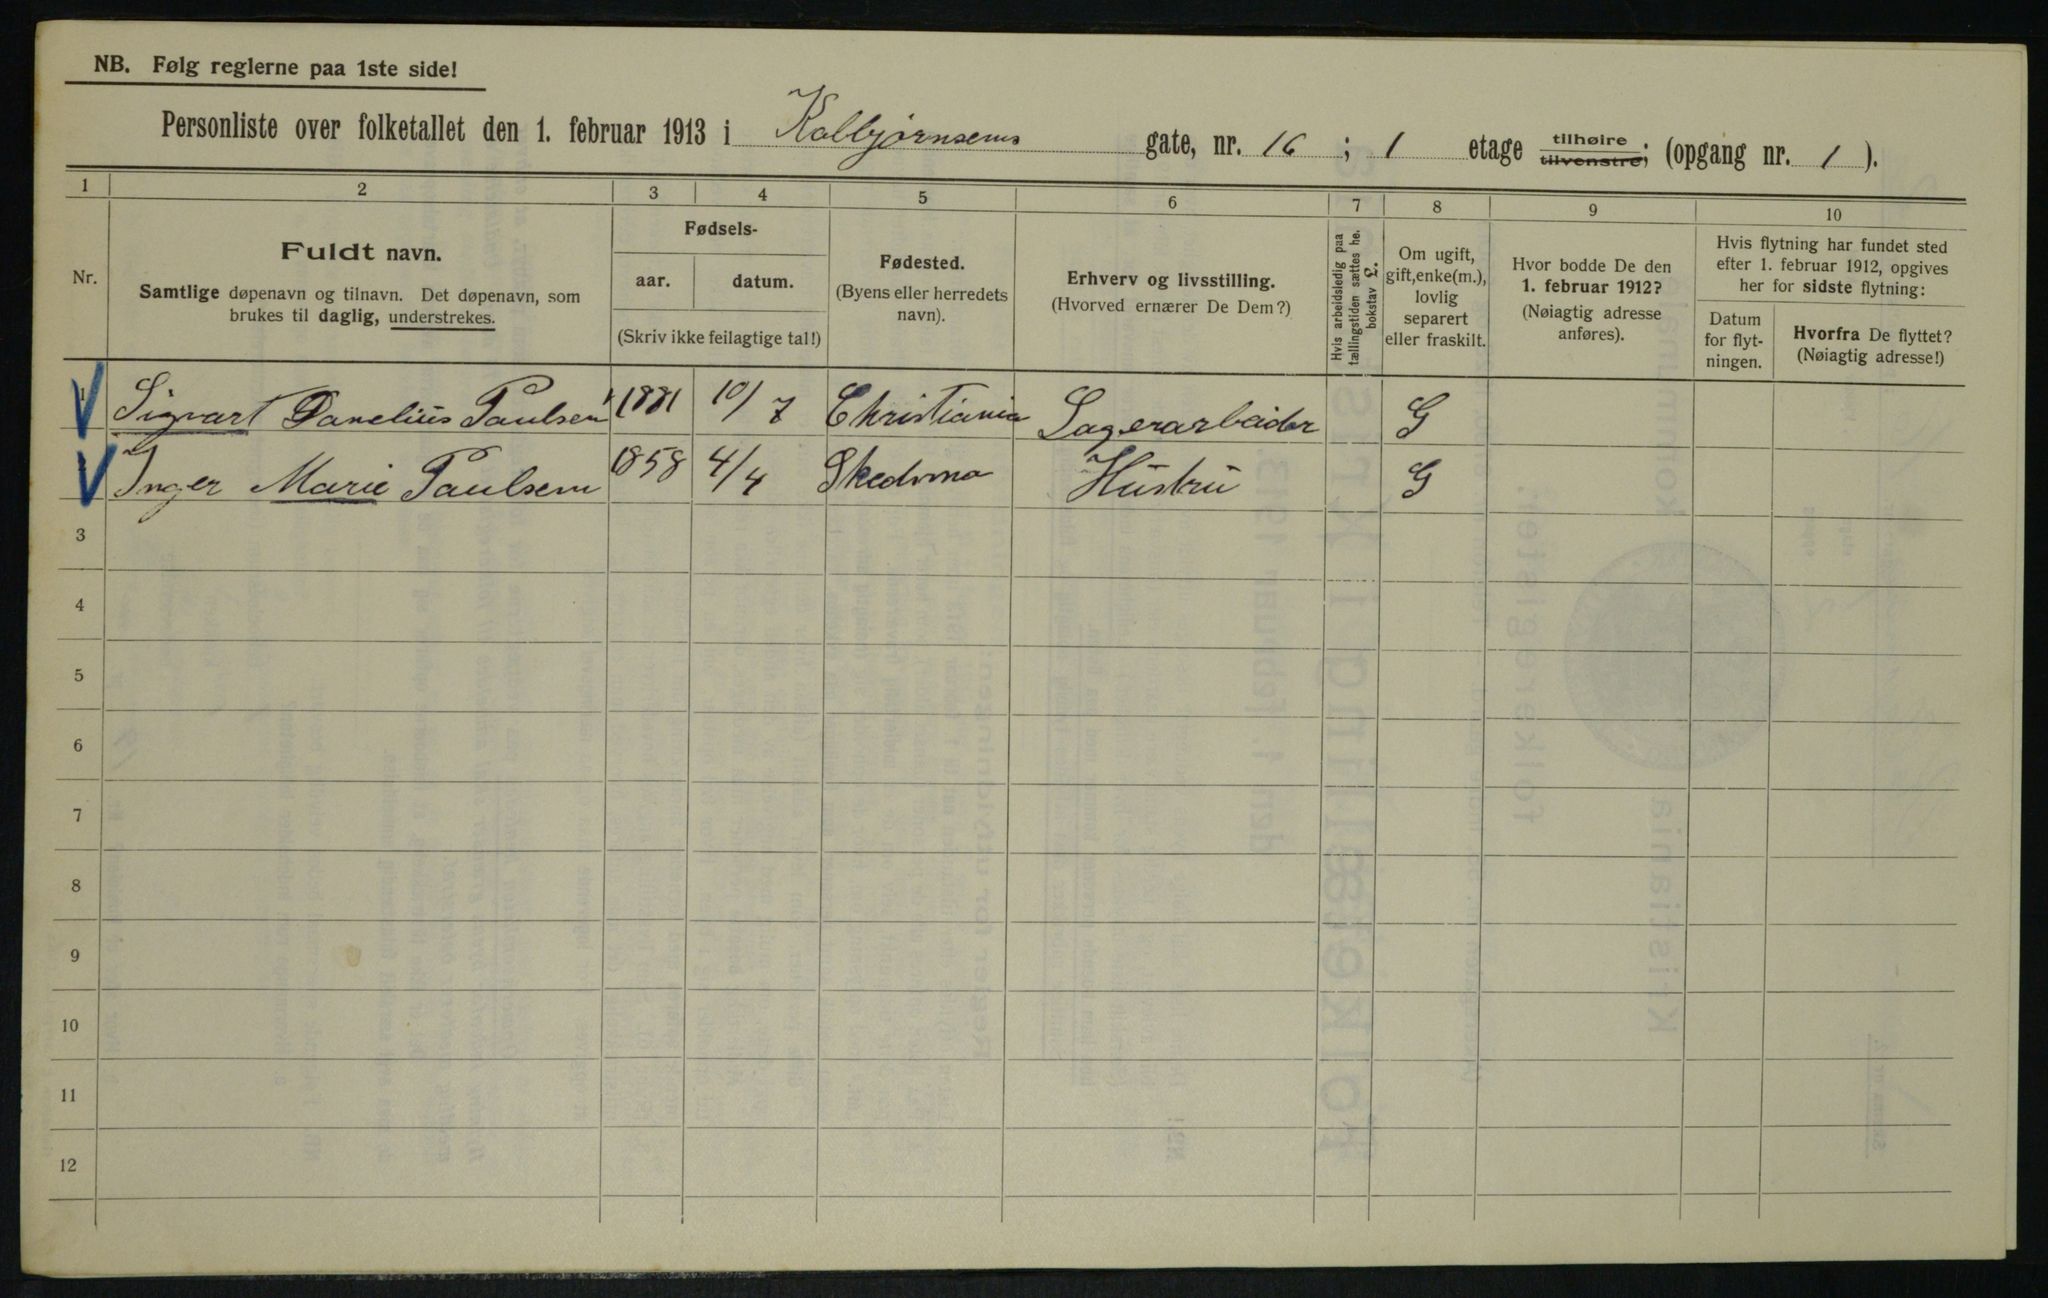 NB. Følg reglerne paa 1ste side!
Personliste over folketallet den 1. februar 1913 i Kolbjørnsens gate, nr. 16 ; 1 etage tilhøire tilvenstre; (opgang nr. 1 ).
1 2 3 4 5 6 7 8 9 10
Nr.
Fuldt navn.
Samtlige døpenavn og tilnavn. Det døpenavn, som
brukes til daglig, understrekes.
Fødsels-
aar. datum.
(Skriv ikke feilagtige tal!)
Fødested.
(Byens eller herredets
navn).
Erhverv og livsstilling.
(Hvorved ernærer De Dem?)
Hvis arbeidsledig paa
tællingstiden sættes he.
bokstav L.
Om ugift,
gift,enke(m.),
lovlig
separert
eller fraskilt.
Hvor bodde De den
1. februar 1912?
(Nøiagtig adresse
anføres).
Hvis flytning har fundet sted
efter 1. februar 1912, opgives
her for sidste flytning:
Datum
for flyt-
ningen.
Hvorfra De flyttet?
(Nøiagtig adresse!)
1 Sigvart Danelius Paulsen 1881 10/7 Christiania Lagerarbeider G
Inger Marie Paulsen 1858 4/4 Skedsmo Hustru G
3
4
5
6
7
8
9
10
11
12